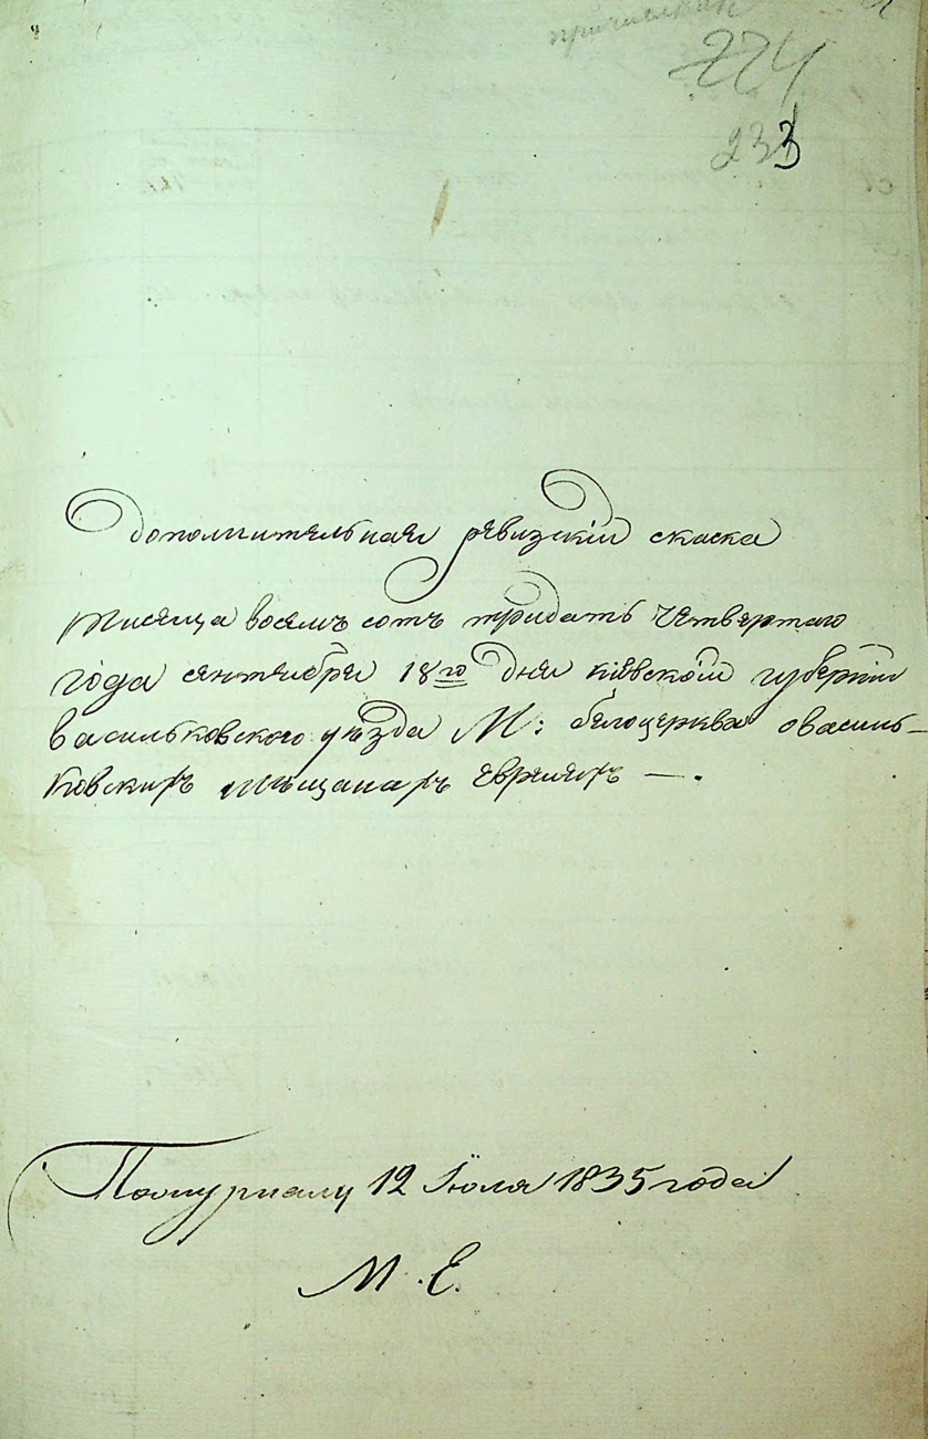 224
233
Дополнительная ревизскій скаска
тисяща восемъ сотъ тридать четвертаго
года сентября 18го дня кіевскоій губерніи
васильковского уѣзда М: белоцерква овасиль-
ковскихъ мѣщанахъ евреяхъ —.
По журналу 12 Іюля 1835 года
М. Е.